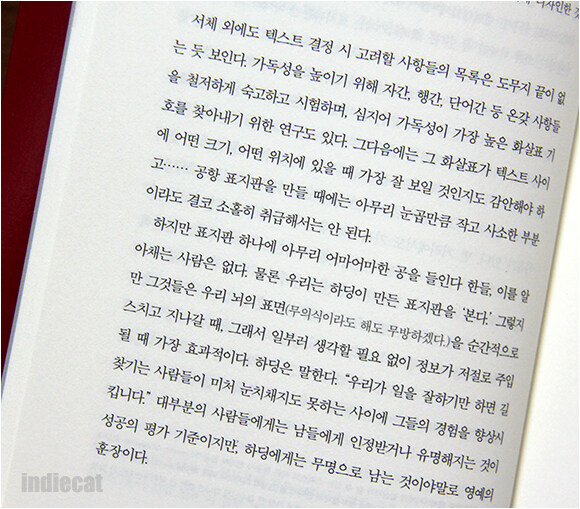 디자인한 것
서체 외에도 텍스트 결정 시 고려할 사항들의 목록은 도무지 끝이 없
는 듯 보인다. 가독성을 높이기 위해 자간, 행간, 단어간 등 온갖 사항들
을 철저하게 숙고하고 시험하며, 심지어 가독성이 가장 높은 화살표 기
호를 찾아내기 위한 연구도 있다. 그다음에는 그 화살표가 텍스트 사이
에 어떤 크기, 어떤 위치에 있을 때 가장 잘 보일 것인지도 감안해야 하
고…… 공항 표지판을 만들 때에는 아무리 눈곱만큼 작고 사소한 부분
이라도 결코 소홀히 취급해서는 안 된다.
하지만 표지판 하나에 아무리 어마어마한 공을 들인다 한들, 이를 알
아채는 사람은 없다. 물론 우리는 하딩이 만든 표지판을 ‘본다.’ 그렇지
만 그것들은 우리 뇌의 표면(무의식이라도 해도 무방하겠다.)을 순간적으로
스치고 지나갈 때, 그래서 일부러 생각할 필요 없이 정보가 저절로 주입
될 때 가장 효과적이다. 하딩은 말한다. “우리가 일을 잘하기만 하면 길
찾기는 사람들이 미처 눈치채지도 못하는 사이에 그들의 경험을 향상시
킵니다.” 대부분의 사람들에게는 남들에게 인정받거나 유명해지는 것이
성공의 평가 기준이지만, 하딩에게는 무명으로 남는 것이야말로 영예의
훈장이다.
indiecat